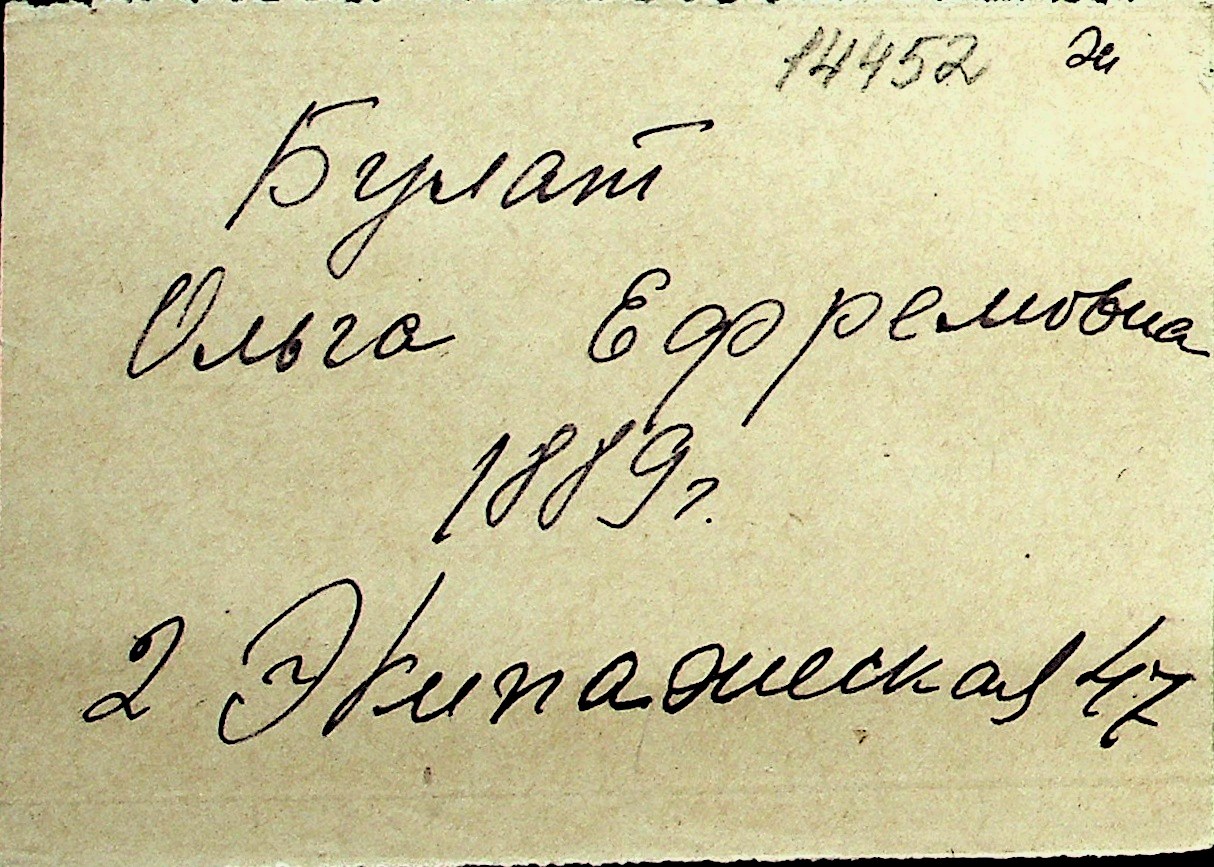 14452 ж
Булат
Ольга Ефремовна
1889 г.
2 Экипажеская 47